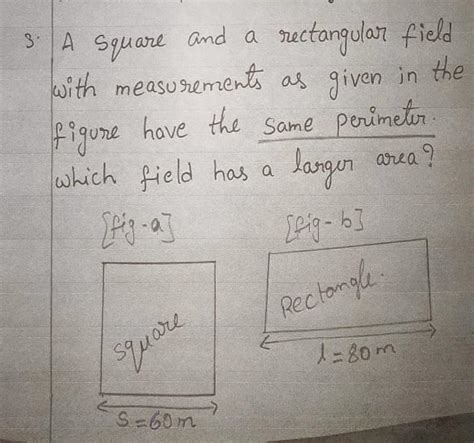 3. A square and a rectangular field
with measurements as given in the
figure have the same perimeter.
which field has a larger area?
[fig-a] [fig-b]
square Rectangle.
S=60m l=80m